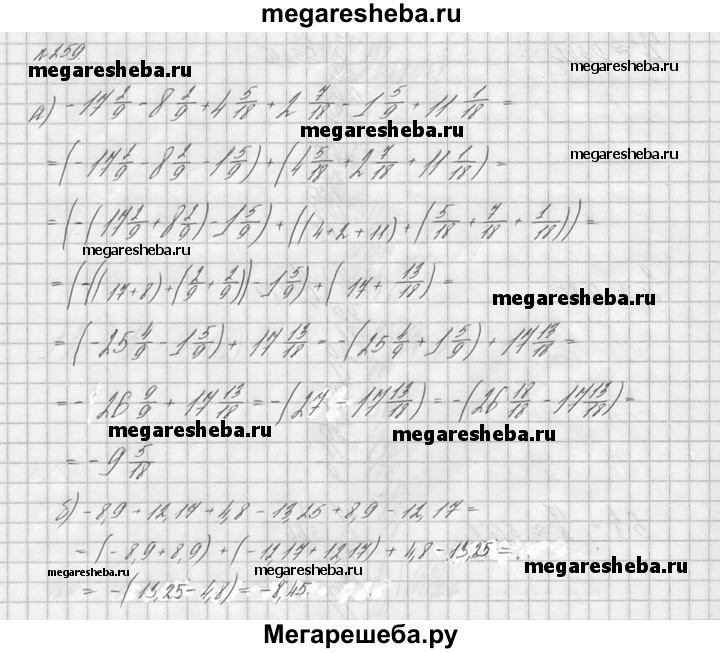 megaresheba.ru
№259.
megaresheba.ru
megaresheba.ru
а) -17 2/9 - 8 2/9 + 4 5/18 + 2 7/18 - 1 5/9 + 11 1/18 =
megaresheba.ru
= (-17 2/9 - 8 2/9 - 1 5/9) + (4 5/18 + 2 7/18 + 11 1/18) =
megaresheba.ru
= (-(17 2/9 + 8 2/9) - 1 5/9) + ((4+2+11) + (5/18 + 7/18 + 1/18)) =
megaresheba.ru
= (-((17+8) + (2/9 + 2/9)) - 1 5/9) + (17 + 13/18) =
megaresheba.ru
= (-25 4/9 - 1 5/9) + 17 13/18 = -(25 4/9 + 1 5/9) + 17 13/18 =
= -26 9/9 + 17 13/18 = -(27 - 17 13/18) = -(26 18/18 - 17 13/18) =
megaresheba.ru
megaresheba.ru
= -9 5/18
б) -8,9 + 12,17 + 4,8 - 13,25 + 8,9 - 12,17 =
= (-8,9 + 8,9) + (-12,17 + 12,17) + 4,8 - 13,25 =
megaresheba.ru
megaresheba.ru
megaresheba.ru
= -(13,25 - 4,8) = -8,45.
Мегарешеба.ру